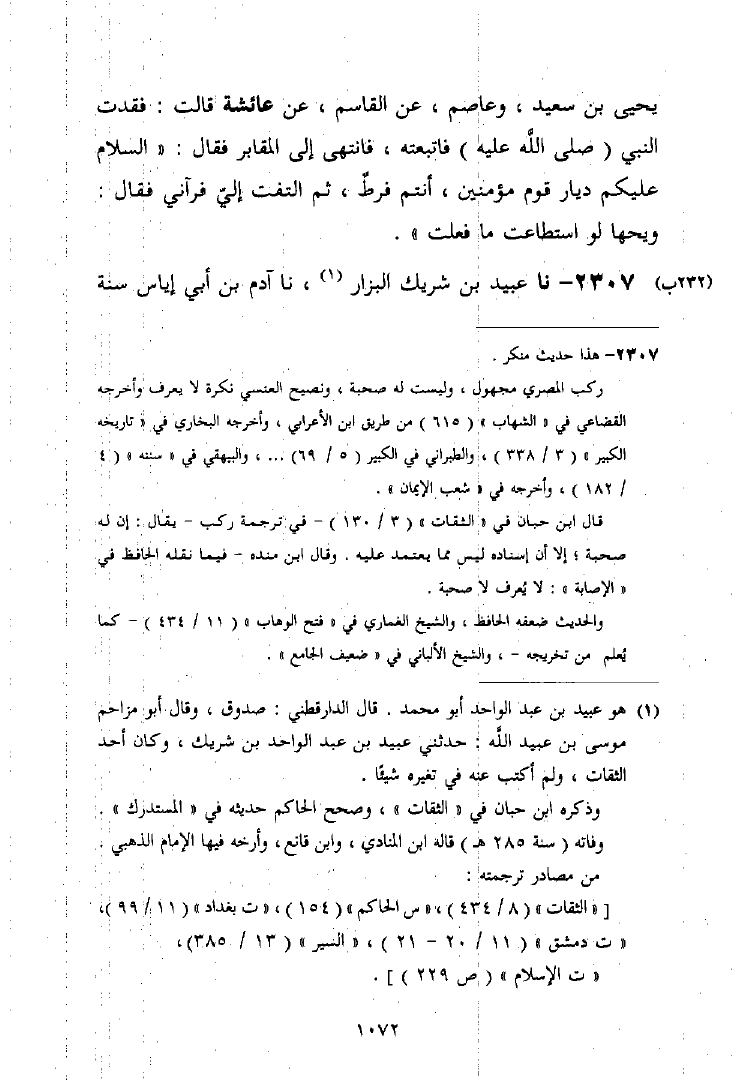 يحيى بن سعيد ، وعاصم ، عن القاسم ، عن عائشة قالت : فقدت
النبي ( صلى اللَّه عليه ) فاتبعته ، فانتهى إلى المقابر فقال : « السلام
عليكم ديار قوم مؤمنين ، أنتم فرطٌ ، ثم التفت إليّ فرآني فقال :
ويحها لو استطاعت ما فعلت » .
(٢٣٢ب) ٢٣٠٧- نا عبيد بن شريك البزار (١) ، نا آدم بن أبي إياس سنة
٢٣٠٧- هذا حديث منكر .
ركب المصري مجهول ، وليست له صحبة ، ونصيح العنسي نكرة لا يعرف وأخرجه
القضاعي في « الشهاب » ( ٦١٥ ) من طريق ابن الأعرابي ، وأخرجه البخاري في « تاريخه
الكبير » ( ٣ / ٣٣٨ ) ، والطبراني في الكبير ( ٥ / ٦٩) ... ، والبيهقي في « سننه » ( ٤
/ ١٨٢ ) ، وأخرجه في « شعب الإيمان » .
قال ابن حبان في « الثقات » ( ٣ / ١٣٠ ) - في ترجمة ركب - يقال : إن له
صحبة ؛ إلا أن إسناده ليس مما يعتمد عليه . وقال ابن منده - فيما نقله الحافظ في
« الإصابة » : لا يُعرف لا صحبة .
والحديث ضعفه الحافظ ، والشيخ الغماري في « فتح الوهاب » ( ١١ / ٤٣٤ ) - كما
يُعلم من تخريجه - ، والشيخ الألباني في « ضعيف الجامع » .
(١) هو عبيد بن عبد الواحد أبو محمد . قال الدارقطني : صدوق ، وقال أبو مزاحم
موسى بن عبيد اللَّه : حدثني عبيد بن عبد الواحد بن شريك ، وكان أحد
الثقات ، ولم أكتب عنه في تغيره شيئًا .
وذكره ابن حبان في « الثقات » ، وصحح الحاكم حديثه في « المستدرك » .
وفاته ( سنة ٢٨٥ هـ ) قاله ابن المنادي ، وابن قانع، وأرخه فيها الإمام الذهبي .
من مصادر ترجمته :
[ « الثقات » ( ٨ / ٤٣٤ ) ، « س الحاكم » ( ١٥٤ ) ، « ت بغداد » ( ١١ / ٩٩ )،
« ت دمشق » ( ١١ / ٢٠ - ٢١ ) ، « السير » ( ١٣ / ٣٨٥)،
« ت الإسلام » ( ص ٢٢٩ ) ] .
١٠٧٢